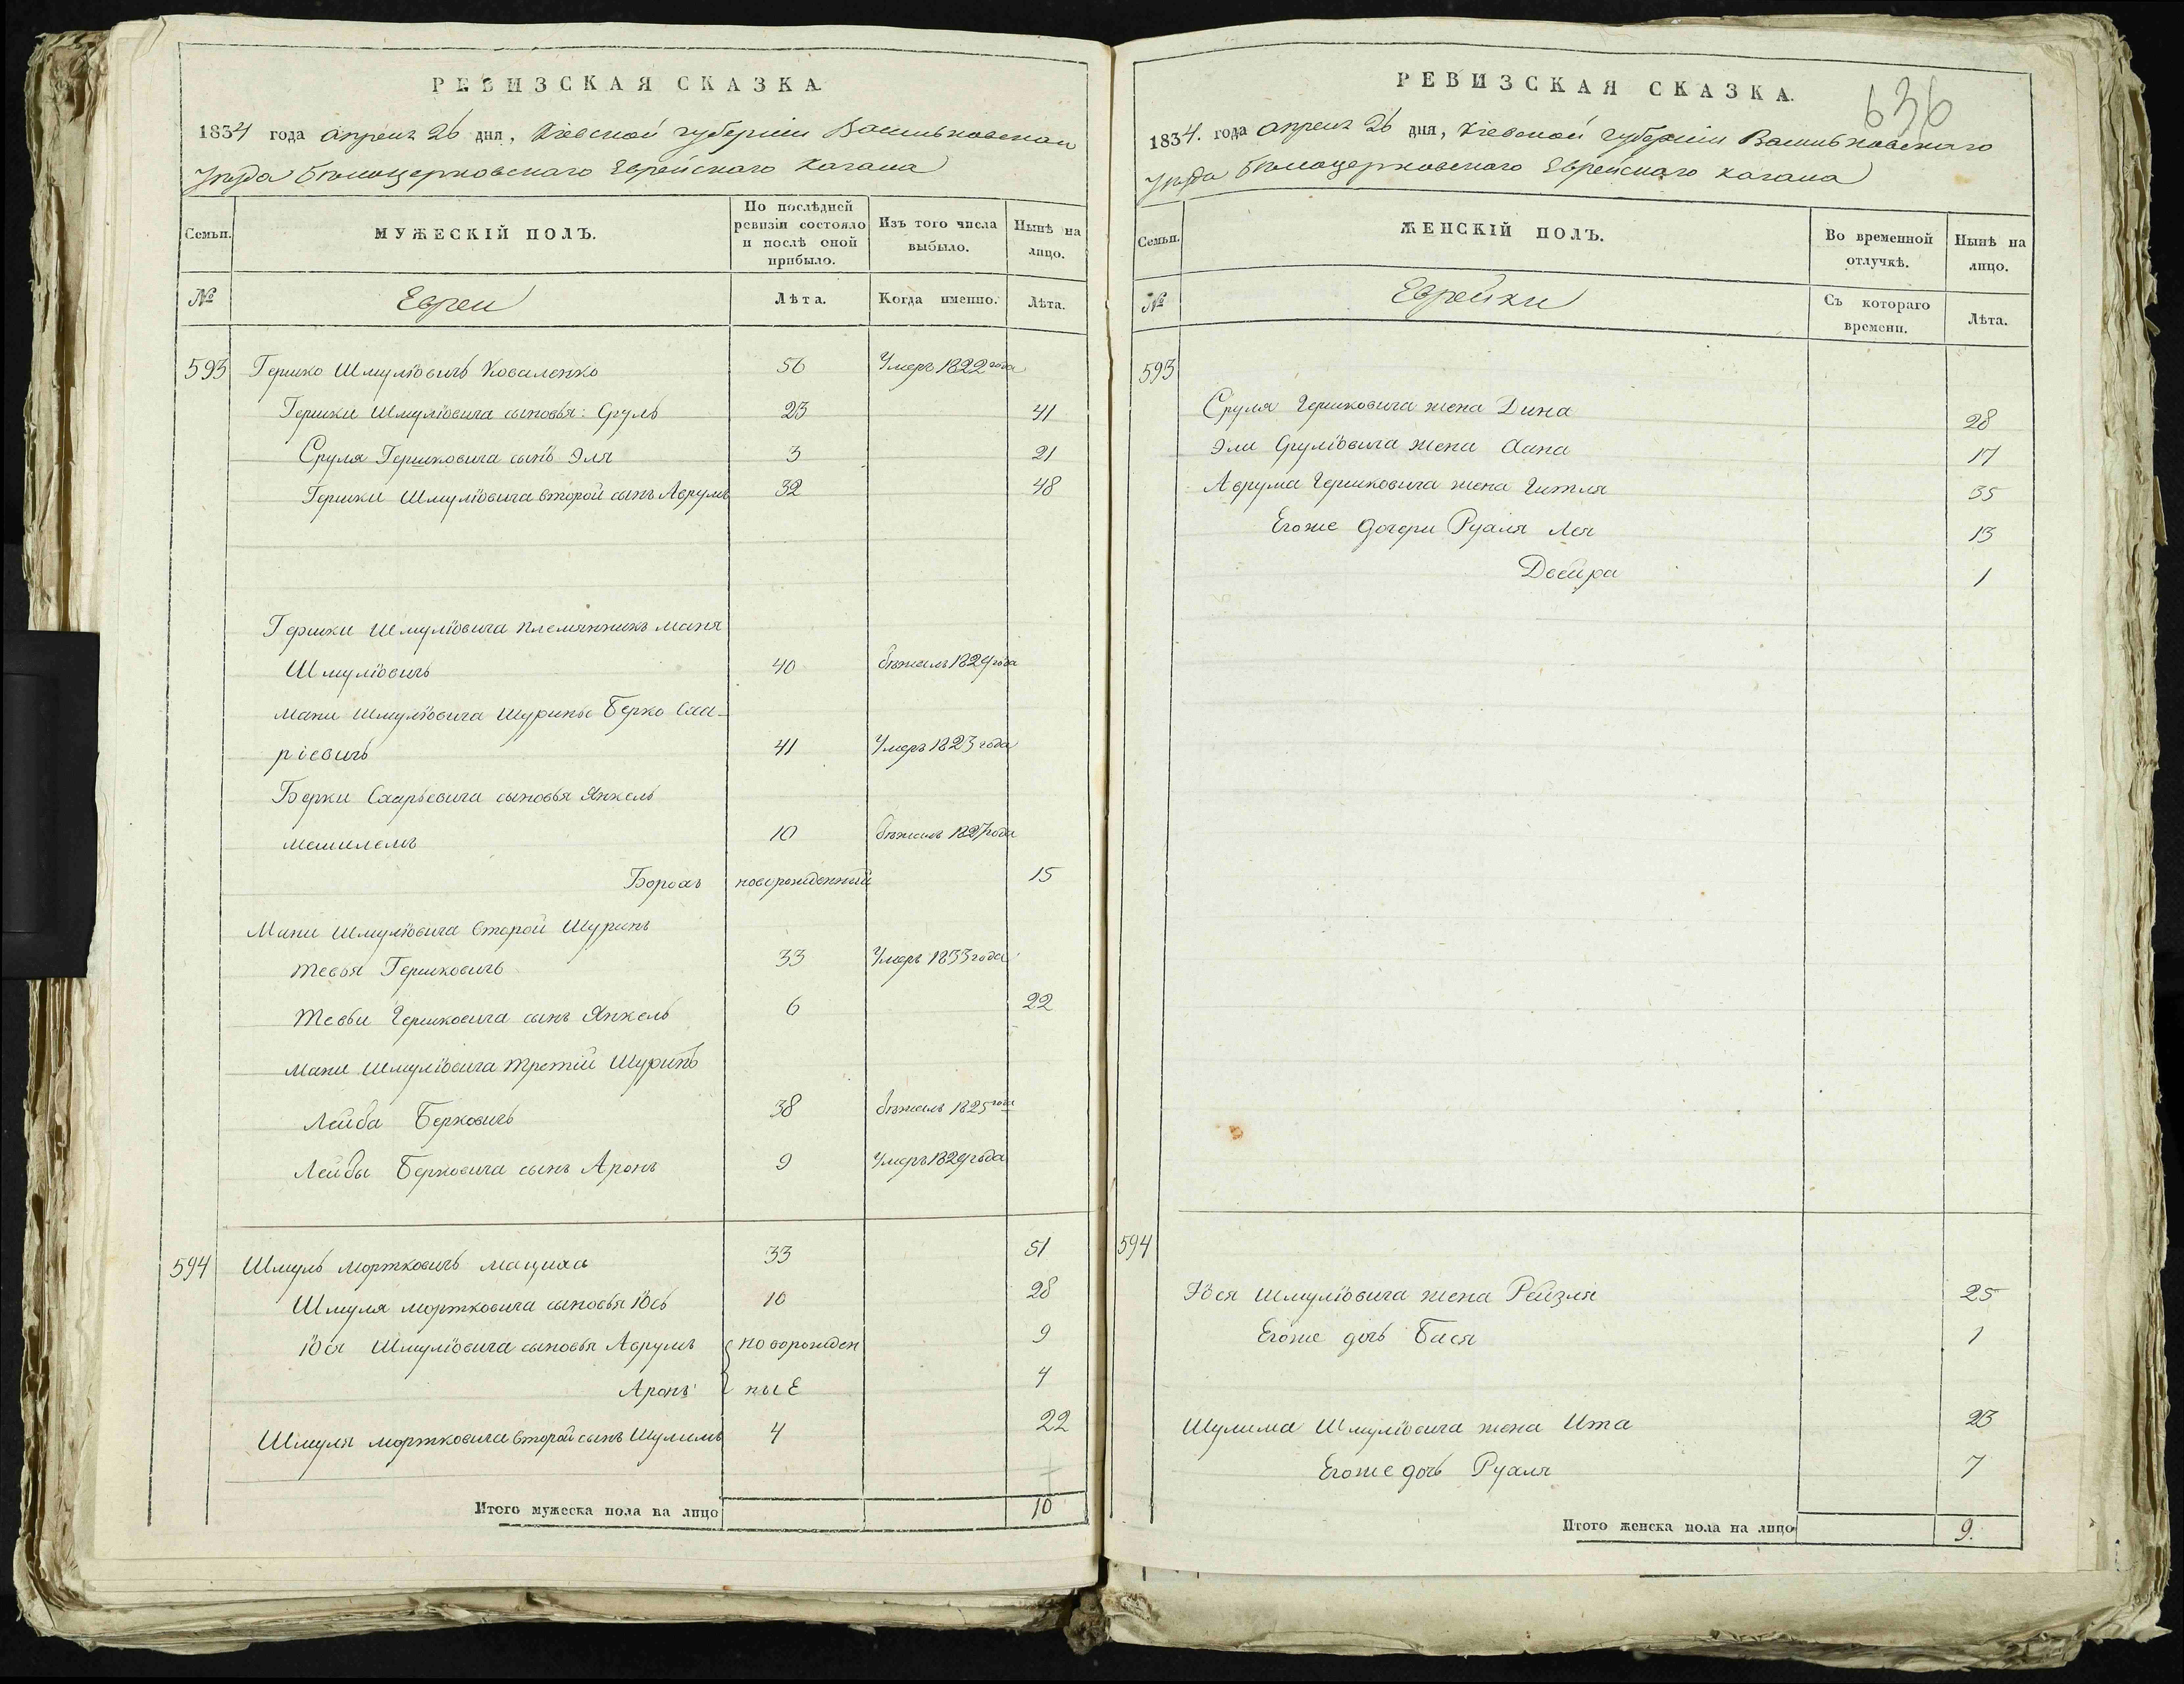 РЕВИЗСКАЯ СКАЗКА
1834 года апреля 26 дня, Кіевской губерніи Васильковскаго
Уѣзда бѣлоцерковскаго Еврейскаго кагала
Семьи.
МУЖЕСКІЙ ПОЛЪ.
По послѣдней ревизіи состояло и послѣ оной прибыло.
Изъ того числа выбыло.
Нынѣ на лицо.
№
Евреи
Лѣта.
Когда именно.
Лѣта.
593 Гершко Шмулiовичъ Коваленко 56 Умеръ 1822 года
Гершки Шмулiовича сыновья: Сруль 23 41
Сруля Гершковича сынъ Эля 3 21
Гершки Шмулiовича второй сынъ Аврумъ 32 48
Гершки Шмулiовича племянникъ Маня
Шмулiовичъ 40 бѣжалъ 1829 года
Мани Шмулiовича Шуринъ Берко Сха-
ріевичъ 41 Умеръ 1823 года
Берки Схарьевича сыновья Янкель
мешилемъ 10 бѣжалъ 1827 года
Борохъ новорожденный 15
Мани Шмулiовича второй Шуринъ
Тевья Гершковичъ 33 Умеръ 1833 года
Тевьи Гершковича сынъ Янкель 6 22
Мани Шмулiовича третій Шуринъ
Лейба Берковичъ 38 бѣжалъ 1825 года
Лейбы Берковича сынъ Аронъ 9 Умеръ 1829 года
594 Шмуль мортковичъ мацюха 33 51
Шмуля мортковича сыновья Юсь 10 28
Юся Шмулiовича сыновья Аврумъ новорожден 9
Аронъ ные 4
Шмуля мортковича второй сынъ Шулимъ 4 22
Итого мужеска пола на лицо 10
РЕВИЗСКАЯ СКАЗКА.
636
1834. года апреля 26 дня, Кіевской губерніи Васильковскаго
Уѣзда бѣлоцерковскаго Еврейскаго кагала
Семьи.
ЖЕНСКІЙ ПОЛЪ.
Во временной отлучкѣ.
Нынѣ на лицо.
№
Еврейки
Съ котораго времени.
Лѣта.
593
Сруля Гершковича жена Дина 28
Эли Срулiовича жена Хана 17
Аврума Гершковича жена Гитля 35
Егоже дочери Рухля Лея 13
Двейра 1
594
Юся Шмулiовича жена Рейзля 25
Егоже дочь Бася 1
Шулима Шмулiовича жена Ита 23
Егоже дочь Рухля 7
Итого женска пола на лицо 9.